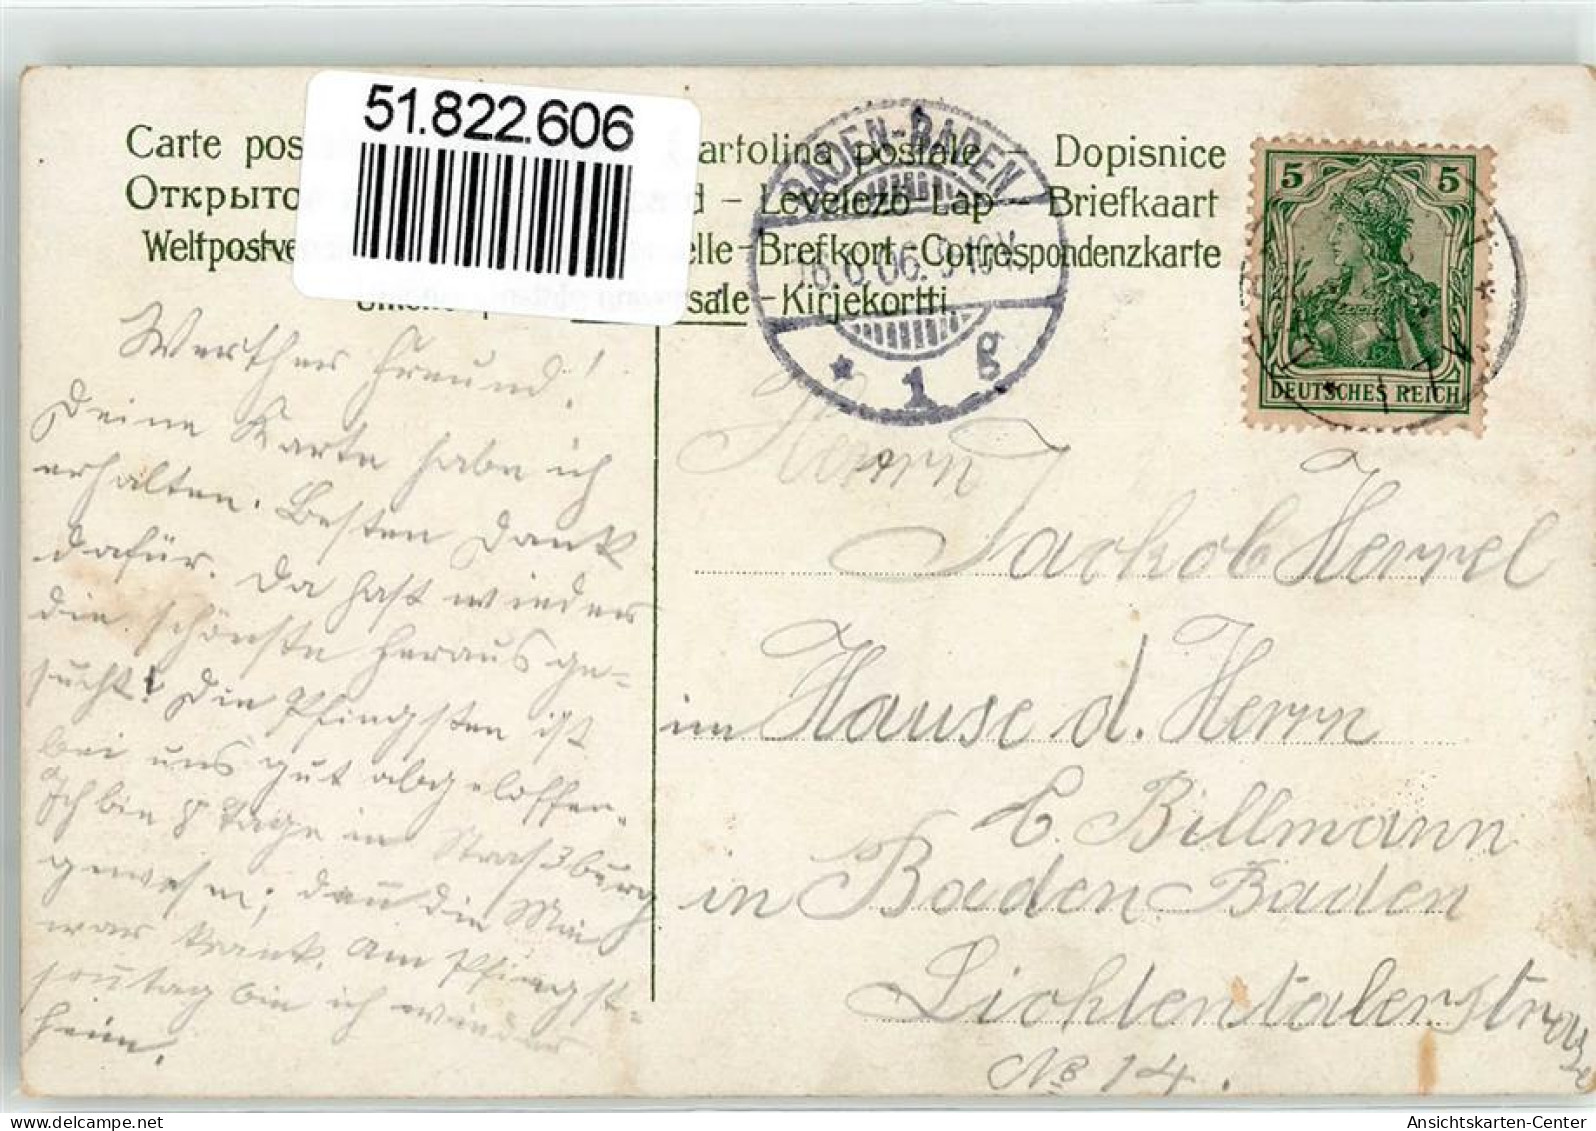 51.822.606
Carte pos artolina postale – Dopisnice
Открыто d – Levelező Lap – Briefkaart
Weltpostve elle – Brefkort – Correspondenzkarte
sale – Kirjekortti.
BADEN-BADEN
6.6.06. 9-10V.
* 1 g
5 5
DEUTSCHES REICH
Werther Freund!
Deine Karte habe ich
erhalten. Besten Dank
dafür. Da hast wieder
die schönste heraus ge-
sucht! Die Pfingsten ist
bei uns gut abgeloffen.
Ich bin 8 Tage in Straßburg
gewesen; dan̄ die
war krank. Am Pfingst-
son̄tag bin ich wieder
heim.
Herrn
Jackob Herrel
im Hause d. Herrn
E. Billmann
in Baden-Baden
Lichtentalerstrasse
No 14.
www.delcampe.net
Ansichtskarten-Center